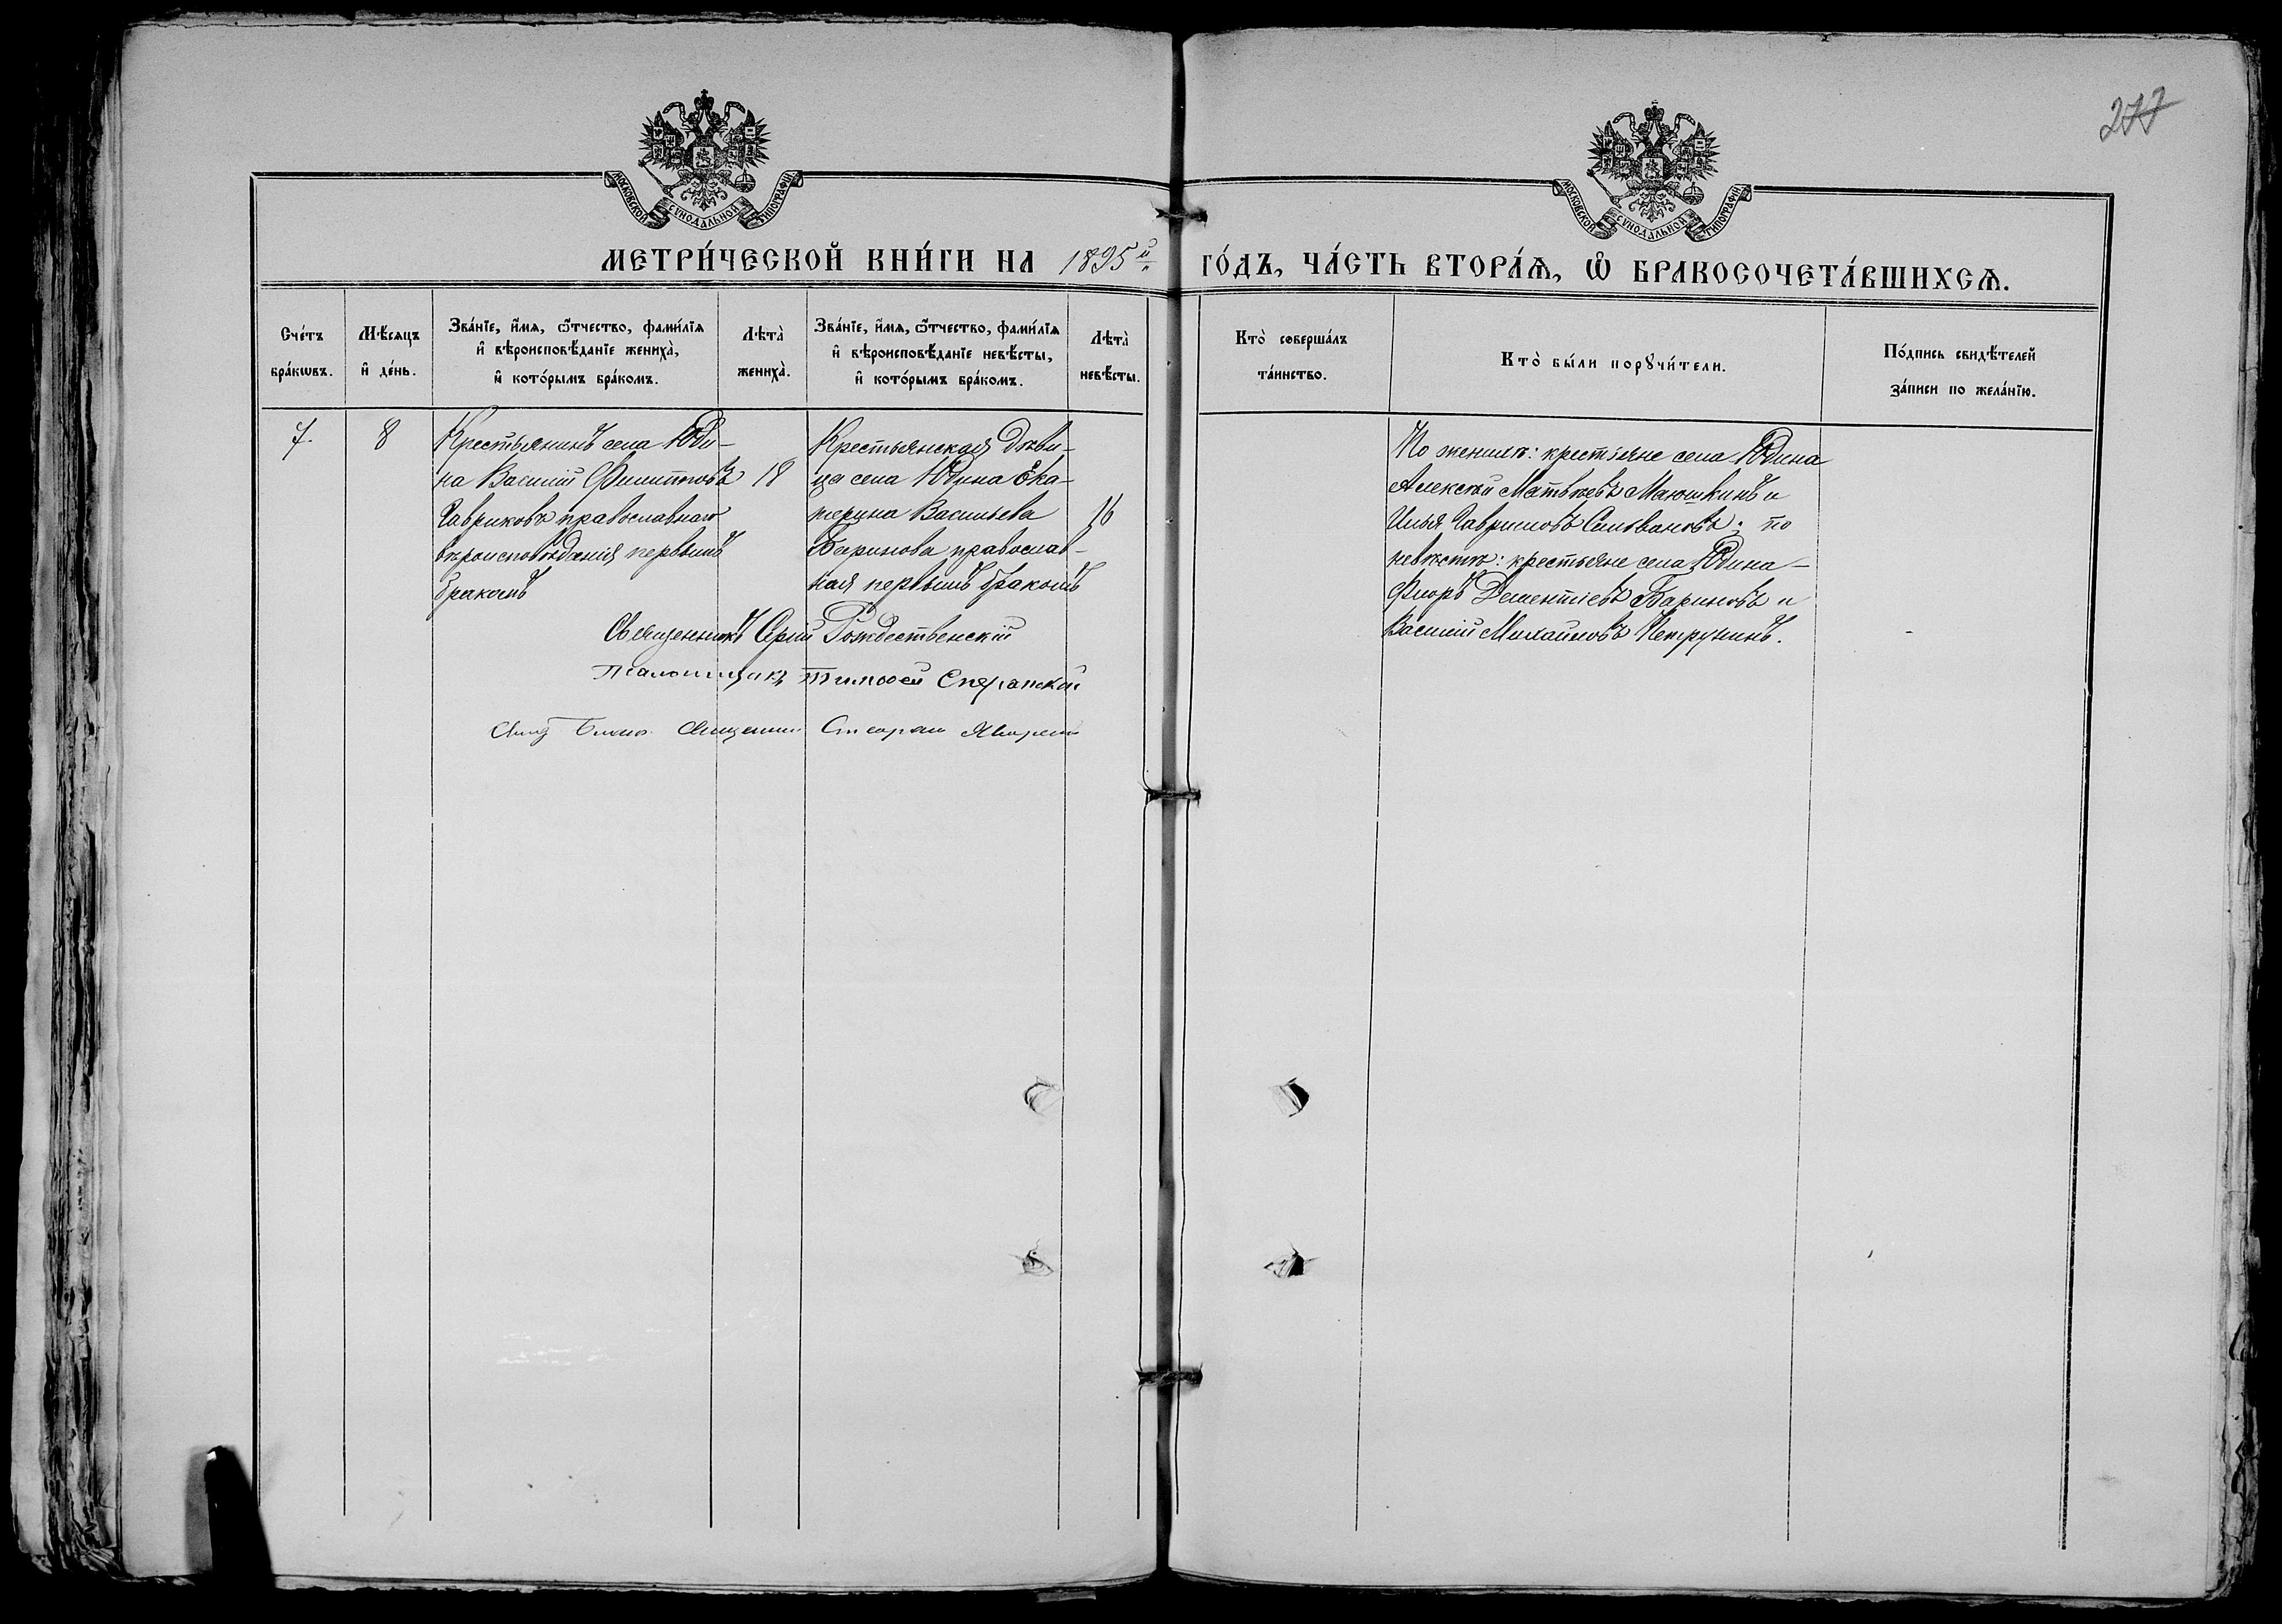 277
МОСКОВСКОЙ СУНОДАЛЬНОЙ ТИПОГРАФІИ
МОСКОВСКОЙ СУНОДАЛЬНОЙ ТИПОГРАФІИ
МЕТРИ́ЧЕСКОЙ КНИ́ГИ НА 1895й ГО́ДЪ, ЧА́СТЬ ВТОРА́Ѧ, Ѽ БРАКОСОЧЕТА́ВШИХСѦ.
Сче́тъ
бра́кѡвъ.
Мѣ́сѧцъ
и҆ де́нь.
Зва́нїе, и҆́мѧ, ѻ҆́тчество, фами́лїѧ
и҆ вѣроисповѣ́данїе жениха̀,
и҆ кото́рымъ бра́комъ.
Лѣта̀
жениха̀.
Зва́нїе, и҆́мѧ, ѻ҆́тчество, фами́лїѧ
и҆ вѣроисповѣ́данїе невѣ́сты,
и҆ кото́рымъ бра́комъ.
Лѣта̀
невѣ́сты.
Кто̀ соверша́лъ
та́инство.
Кто̀ бы́ли порꙋчи́тели.
По́дпись свидѣ́телей
за́писи по жела́нїю.
7.
8
Крестьянинъ села Юди-
на Василій Филипповъ
Гавриковъ православнаго
вѣроисповѣданія первымъ
бракомъ
18
Крестьянская дѣви-
ца села Юдина Ека-
терина Васильева
Баринова православ-
ная первымъ бракомъ
16
По женихѣ: крестьяне села Юдина
Алексѣй Матвѣевъ Маюшкинъ и
Илья Гавриловъ Селивановъ; по
невѣстѣ: крестьяне села Юдина –
Флоръ Дементіевъ Бариновъ и
Василій Михайловъ Петрухинъ.
Священникъ Сергій Рождественскій
Псаломщикъ Тимоѳей Сперанскій